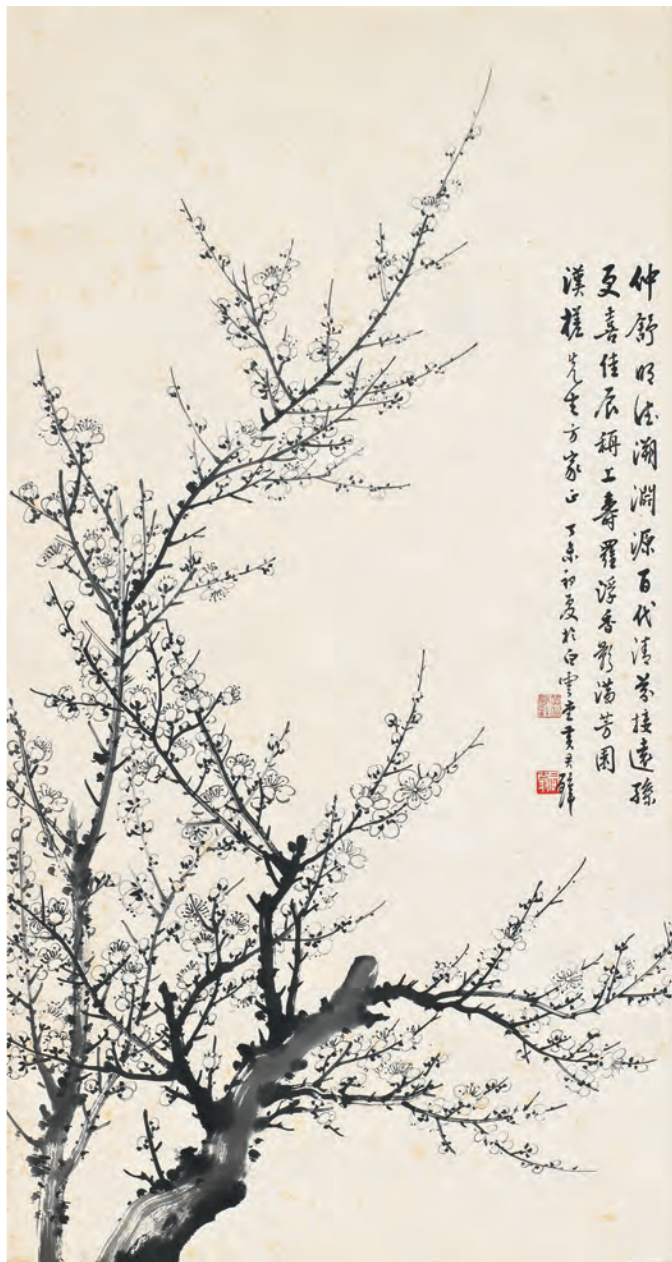 仲舒明德溯淵源百代清芬接遠孫
更喜佳辰稱上壽羅浮香影滿芳園
漢槎先生方家正 丁未初夏於白雲堂黃君璧